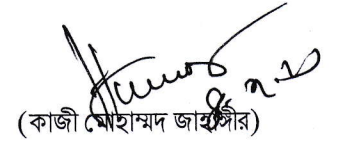 (কাজী মোহাম্মদ জাহাঙ্গীর)